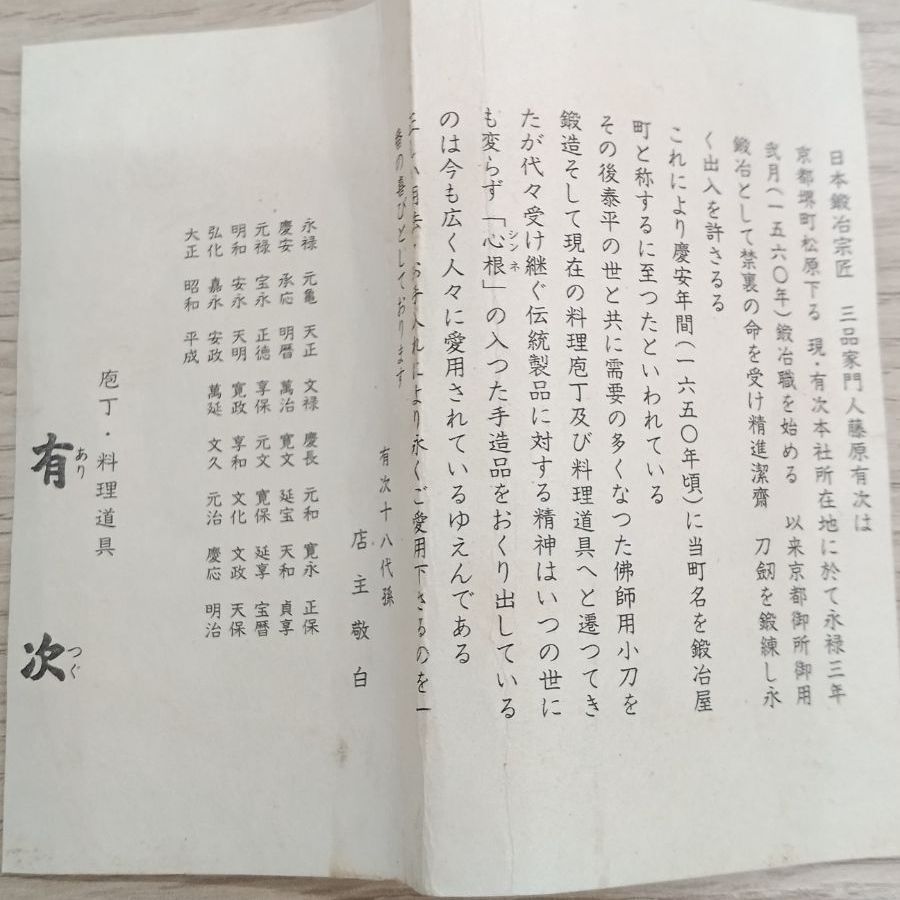 日本鍛冶宗匠　三品家門人藤原有次は
京都堺町松原下る　現・有次本社所在地に於て永禄三年
弐月(一五六〇年)鍛冶職を始める　以来京都御所御用
鍛冶として禁裏の命を受け精進潔齋　刀劔を鍛練し永
く出入を許さるる
これにより慶安年間(一六五〇年頃)に当町名を鍛冶屋
町と称するに至つたといわれている
その後泰平の世と共に需要の多くなつた佛師用小刀を
鍛造そして現在の料理庖丁及び料理道具へと遷つてき
たが代々受け継ぐ伝統製品に対する精神はいつの世に
も変らず「心根」の入つた手造品をおくり出している
シンネ
のは今も広く人々に愛用されているゆえんである
正しい用法・お手入れにより永くご愛用下さるのを一
番の喜びとしております
有次十八代孫
店主敬白
永禄　元亀　天正　文禄　慶長　元和　寛永　正保
慶安　承応　明暦　萬治　寛文　延宝　天和　貞享
元禄　宝永　正徳　享保　元文　寛保　延享　宝暦
明和　安永　天明　寛政　享和　文化　文政　天保
弘化　嘉永　安政　萬延　文久　元治　慶応　明治
大正　昭和　平成
庖丁・料理道具
有次
あり　つぐ